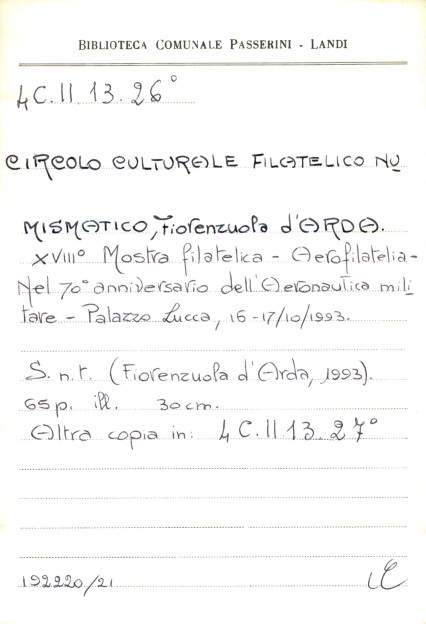 BIBLIOTECA COMUNALE PASSERINI - LANDI
4C.II.13.26°
CIRCOLO CULTURALE FILATELICO NU
MISMATICO, Fiorenzuola d'ARDA.
XVIII° Mostra filatelica - Aerofilatelia -
Nel 70° anniversario dell'Aeronautica mili
tare - Palazzo Lucca, 16-17/10/1993.
S.n.t. (Fiorenzuola d'Arda, 1993).
65 p. ill. 30 cm.
Altra copia in: 4C.II.13.27°
192220/21